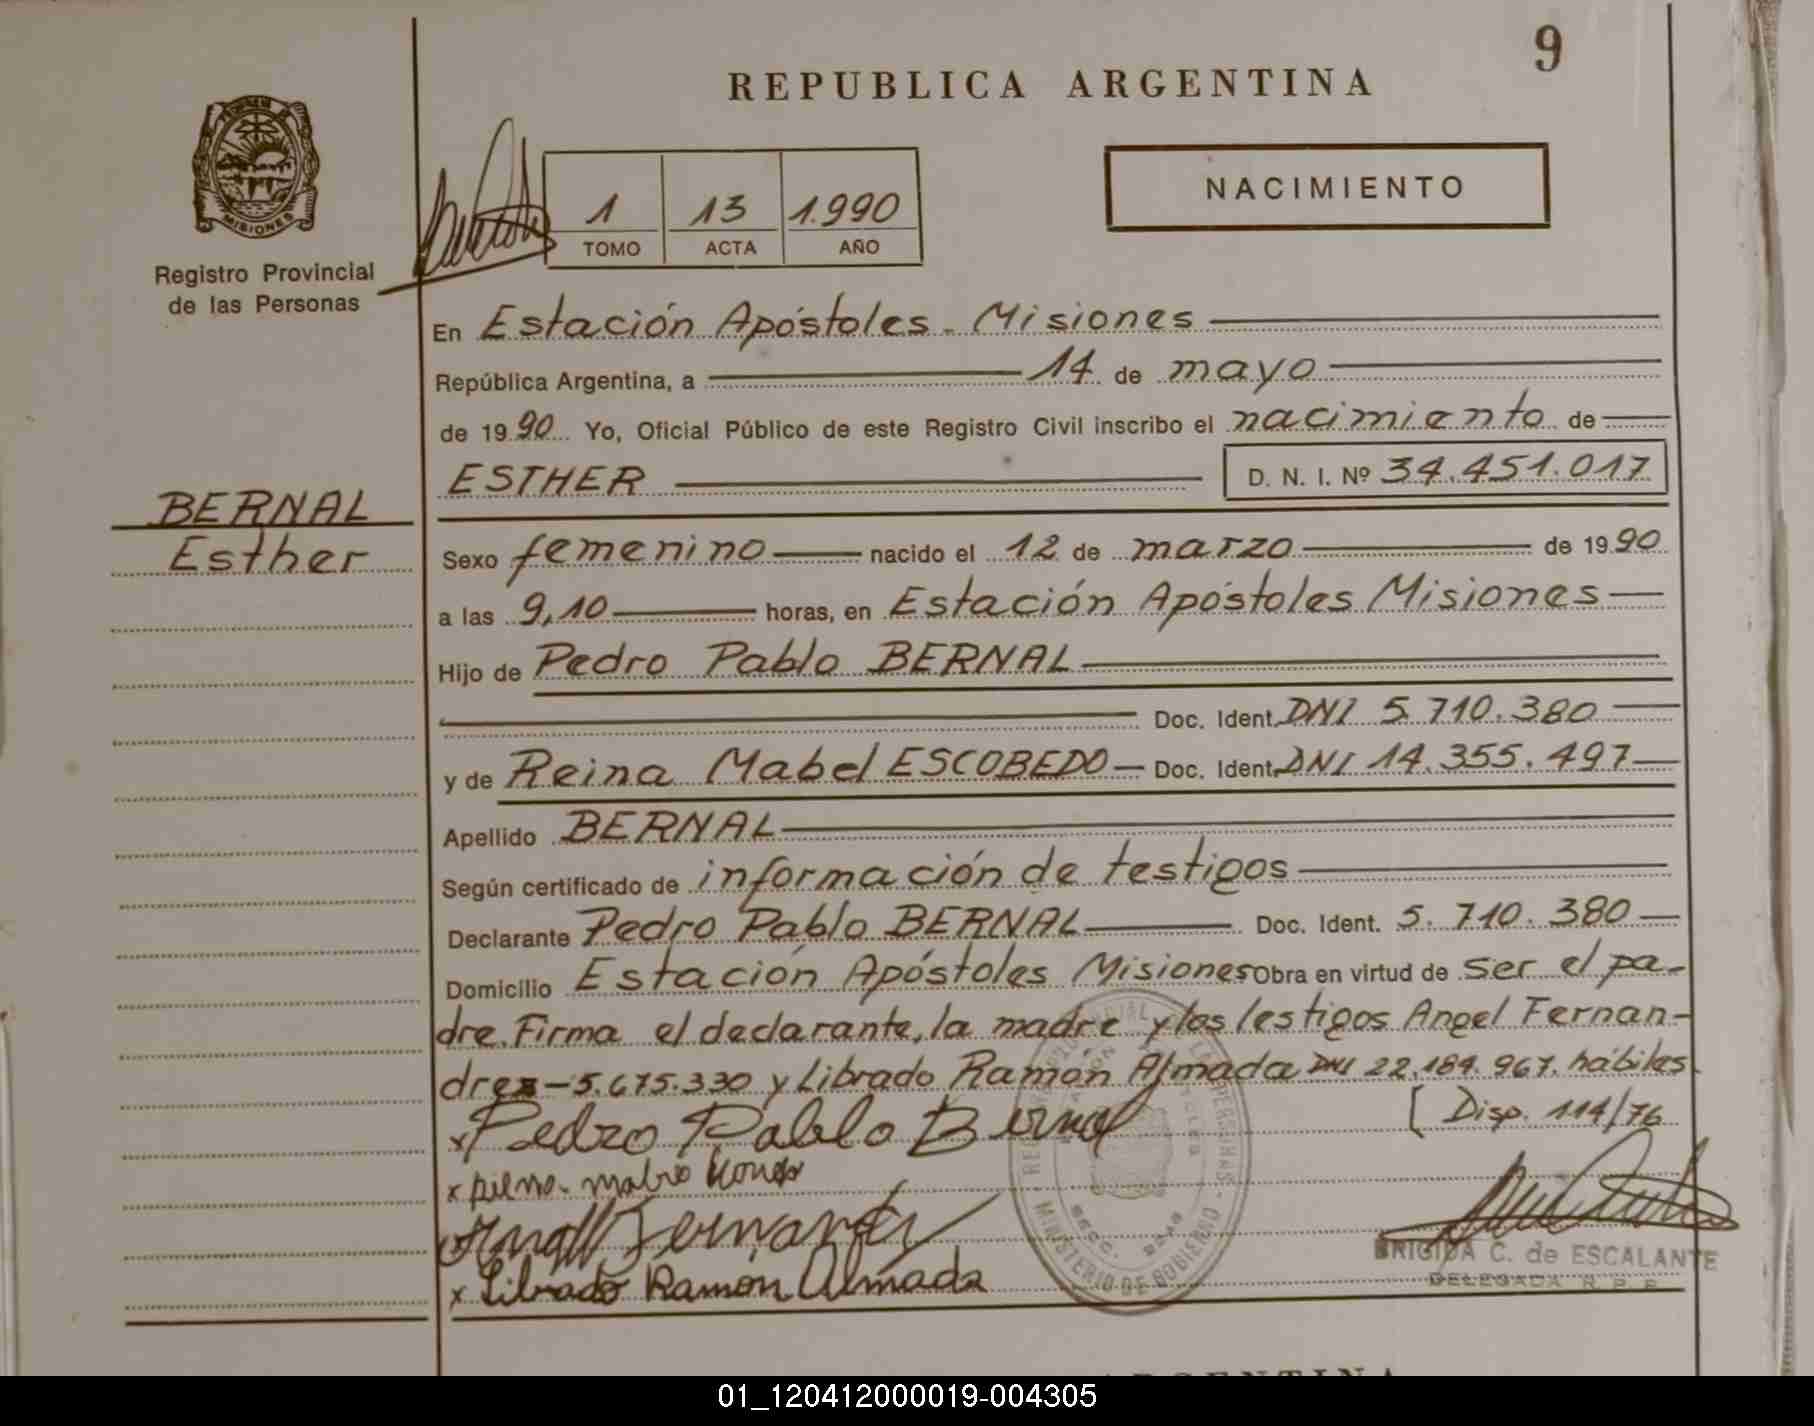 9
REPUBLICA ARGENTINA
MISIONES
Registro Provincial
de las Personas
1 13 1.990
TOMO ACTA AÑO
NACIMIENTO
En Estación Apóstoles - Misiones
República Argentina, a 14 de mayo
de 1990 Yo, Oficial Público de este Registro Civil inscribo el nacimiento de
ESTHER D. N. I. Nº 34.451.017
BERNAL
Esther
Sexo femenino nacido el 12 de marzo de 1990
a las 9,10 horas, en Estación Apóstoles Misiones
Hijo de Pedro Pablo BERNAL
Doc. Ident. DNI 5.710.380
y de Reina Mabel ESCOBEDO Doc. Ident. DNI 14.355.497
Apellido BERNAL
Según certificado de información de testigos
Declarante Pedro Pablo BERNAL Doc. Ident. 5.710.380
Domicilio Estación Apóstoles Misiones Obra en virtud de ser el pa-
dre. Firma el declarante, la madre y los testigos Angel Fernan-
drez - 5.675.330 y Librado Ramón Almada DNI 22.184.967. hábiles
[ Disp. 114/76
x Pedro Pablo Bernal
x
Fernandez
x Librado Ramón Almada
MINISTERIO DE GOBIERNO
BRIGIDA C. de ESCALANTE
DELEGADA R. P. P.
ARGENTINA
01_120412000019-004305